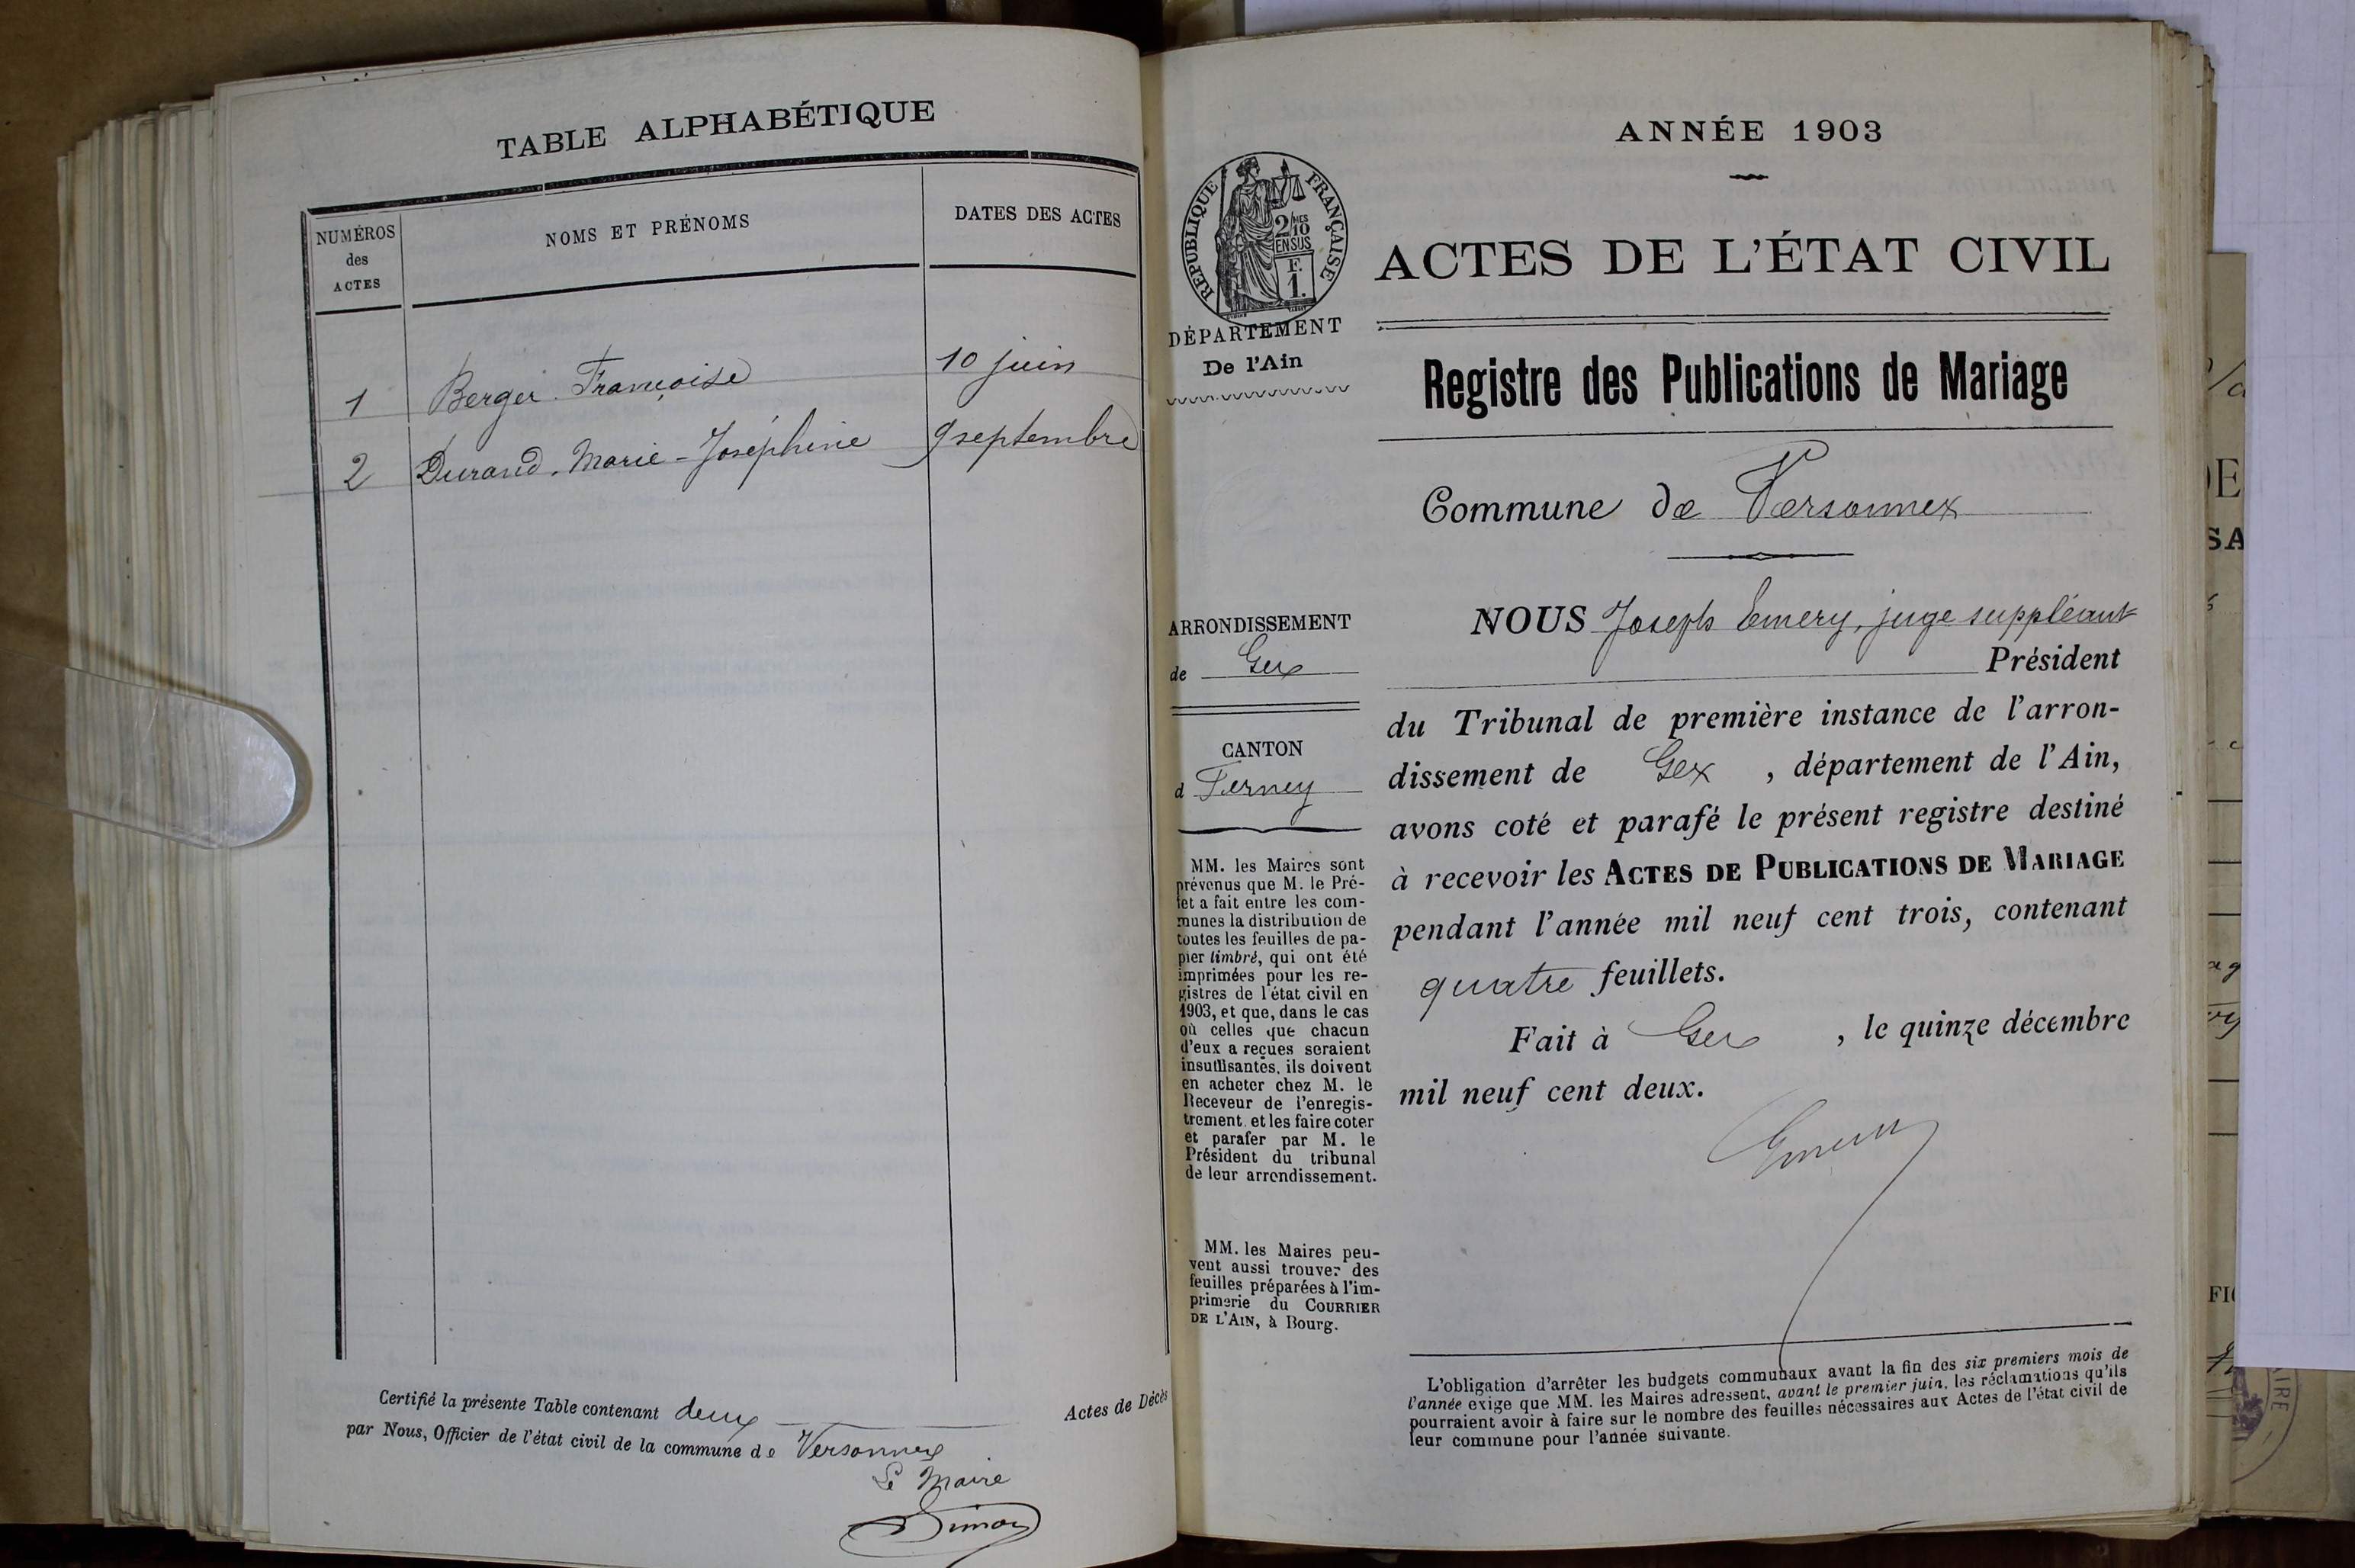 TABLE ALPHABÉTIQUE
NUMÉROS
des
ACTES
NOMS ET PRÉNOMS
DATES DES ACTES
1 Berger Françoise 10 juin
2 Durand Marie-Joséphine 9 septembre
Certifié la présente Table contenant deux
par Nous, Officier de l'état civil de la commune de Versonnex
Le Maire
Actes de Décès
RÉPUBLIQUE FRANÇAISE
2/10MES
EN SUS
F.
1.
DÉPARTEMENT
De l'Ain
ARRONDISSEMENT
de Gex
CANTON
d Ferney
MM. les Maires sont
prévenus que M. le Pré-
fet a fait entre les com-
munes la distribution de
toutes les feuilles de pa-
pier timbré, qui ont été
imprimées pour les re-
gistres de l'état civil en
1903, et que, dans le cas
où celles que chacun
d'eux a reçues seraient
insuffisantes, ils doivent
en acheter chez M. le
Receveur de l'enregis-
trement et les faire coter
et parafer par M. le
Président du tribunal
de leur arrondissement.
MM. les Maires peu-
vent aussi trouver des
feuilles préparées à l'im-
primerie du COURRIER
DE L'AIN, à Bourg.
ANNÉE 1903
ACTES DE L'ÉTAT CIVIL
Registre des Publications de Mariage
Commune de Versonnex
NOUS Joseph Emery, juge suppléant
Président
du Tribunal de première instance de l'arron-
dissement de Gex, département de l'Ain,
avons coté et parafé le présent registre destiné
à recevoir les ACTES DE PUBLICATIONS DE MARIAGE
pendant l'année mil neuf cent trois, contenant
quatre feuillets.
Fait à Gex, le quinze décembre
mil neuf cent deux.
Emery
L'obligation d'arrêter les budgets communaux avant la fin des six premiers mois de
l'année exige que MM. les Maires adressent, avant le premier juin, les réclamations qu'ils
pourraient avoir à faire sur le nombre des feuilles nécessaires aux Actes de l'état civil de
leur commune pour l'année suivante.